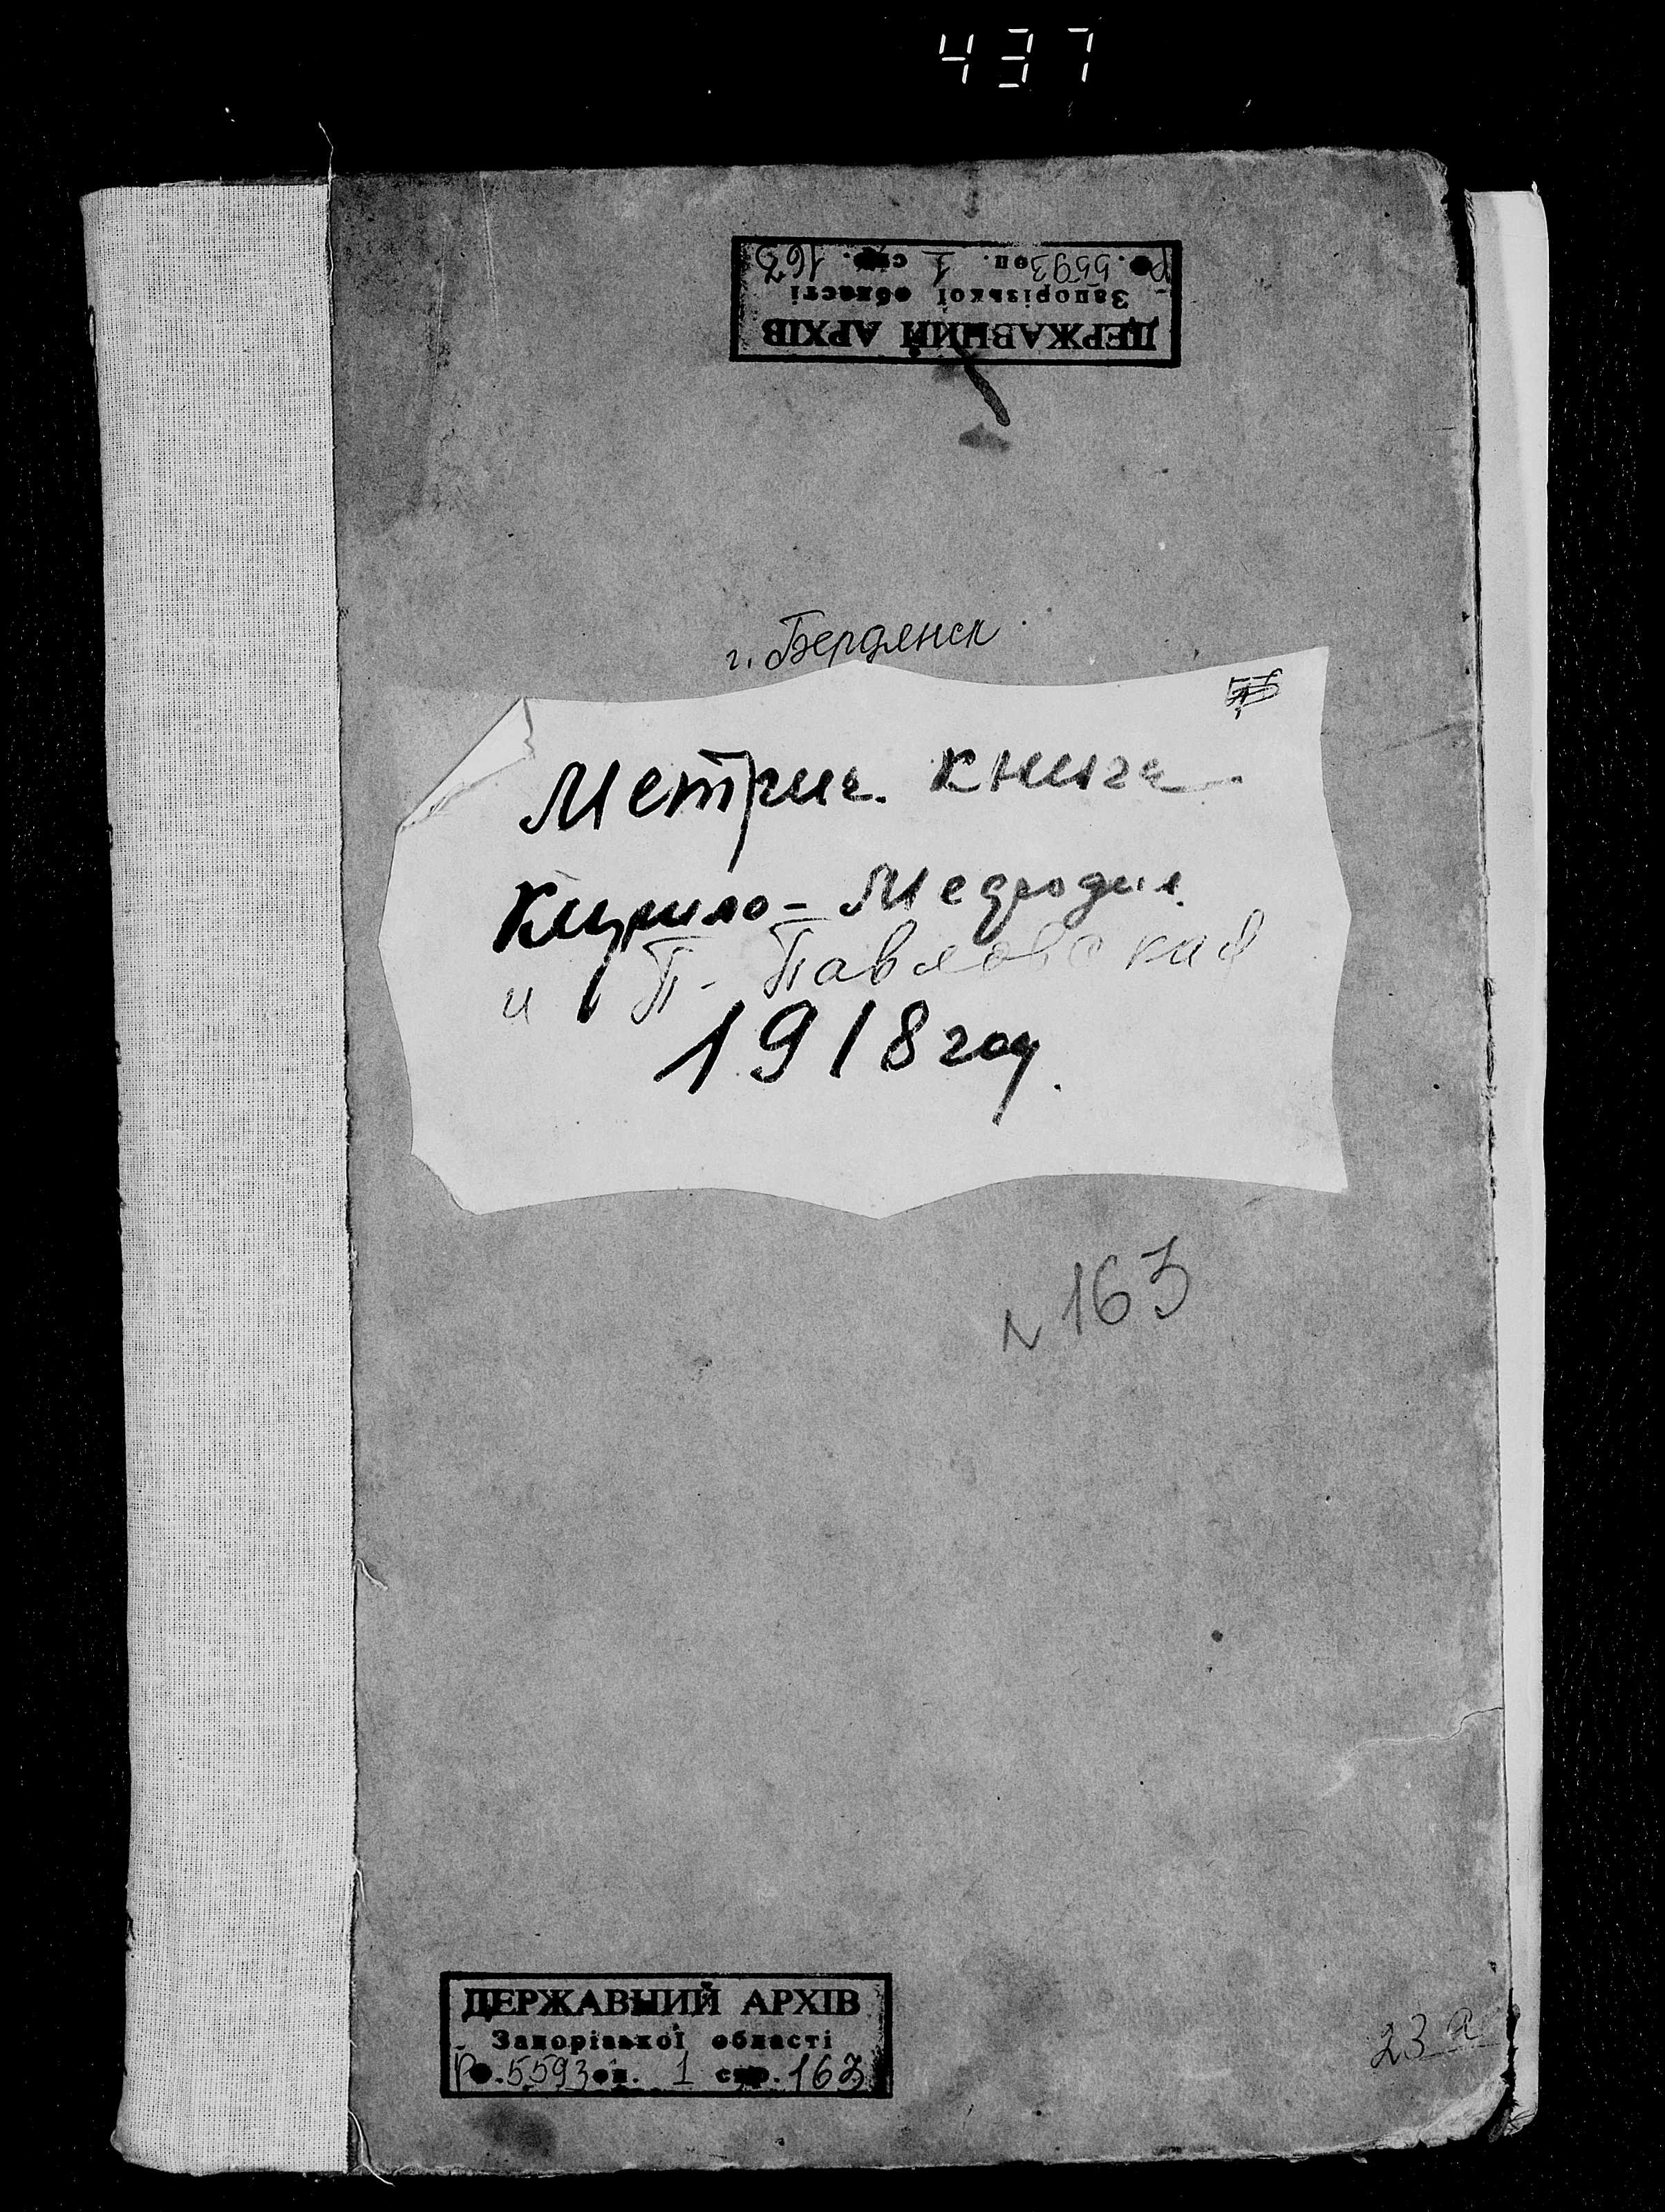 437
ДЕРЖАВНИЙ АРХІВ
Запорізької області
Рф. 5593 оп. 1 спр. 163
г. Бердянск
Метрич. книга
Кирило-Мефодия
и П-Павловская
1918 год.
N 163
ДЕРЖАВНИЙ АРХІВ
Запорізької області
Рф. 5593 оп. 1 спр. 163
23 а